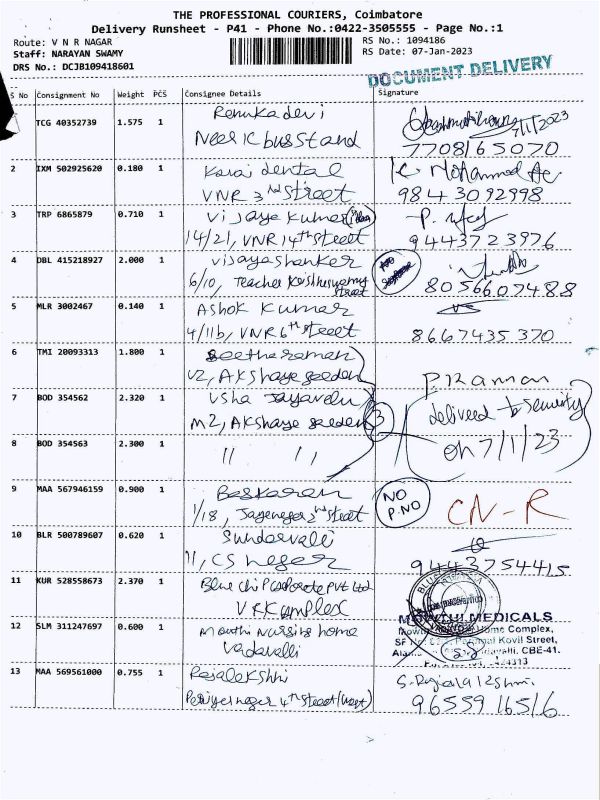 THE PROFESSIONAL COURIERS, Coimbatore
Delivery Runsheet - P41 - Phone No.:0422-3505555 - Page No.:1
Route: V N R NAGAR
RS No.: 1094186
Staff: NARAYAN SWAMY
RS Date: 07-Jan-2023
DRS No.: DCJB109418601
DOCUMENT DELIVERY
S No Consignment No Weight PCS Consignee Details Signature
TCG 40352739 1.575 1 Renuka devi
Near IC bus stand 7/1/2023
7708165070
2 IXM 502925620 0.180 1 Kovai dental K. Mohammed
VNR 3rd Street 9843092998
3 TRP 6865879 0.710 1 Vijaya Kumar
14/21, VNR 14th street 9443723976
4 DBL 415218927 2.000 1 Vijayashanker
6/10, Teacher street 8056607488
5 MLR 3002467 0.140 1 Ashok Kumar
4/11b, VNR 6th street 8667435370
6 TMI 20093313 1.800 1 Seetharaman
V2, Akshaya Garden P Kannan
7 BOD 354562 2.320 1 Usha Jayavelu
M2, Akshaya Garden 3 delivered to Security
8 BOD 354563 2.300 1 " " on 7/1/23
9 MAA 567946159 0.900 1 Baskaran NO P.NO CN-R
1/18, 2nd street
10 BLR 500789607 0.620 1 Sundervalli
11, CS Nagar 9443754415
11 KUR 528558673 2.370 1 Blue chip Corporate Pvt Ltd
VRK Complex
12 SLM 311247697 0.600 1 Nursing home MOWTHI MEDICALS
Vadavalli Home Complex,
Kovil Street,
CBE-41.
13 MAA 569561000 0.755 1 Rajalakshmi S. Rajalakshmi
4th street 9655916516